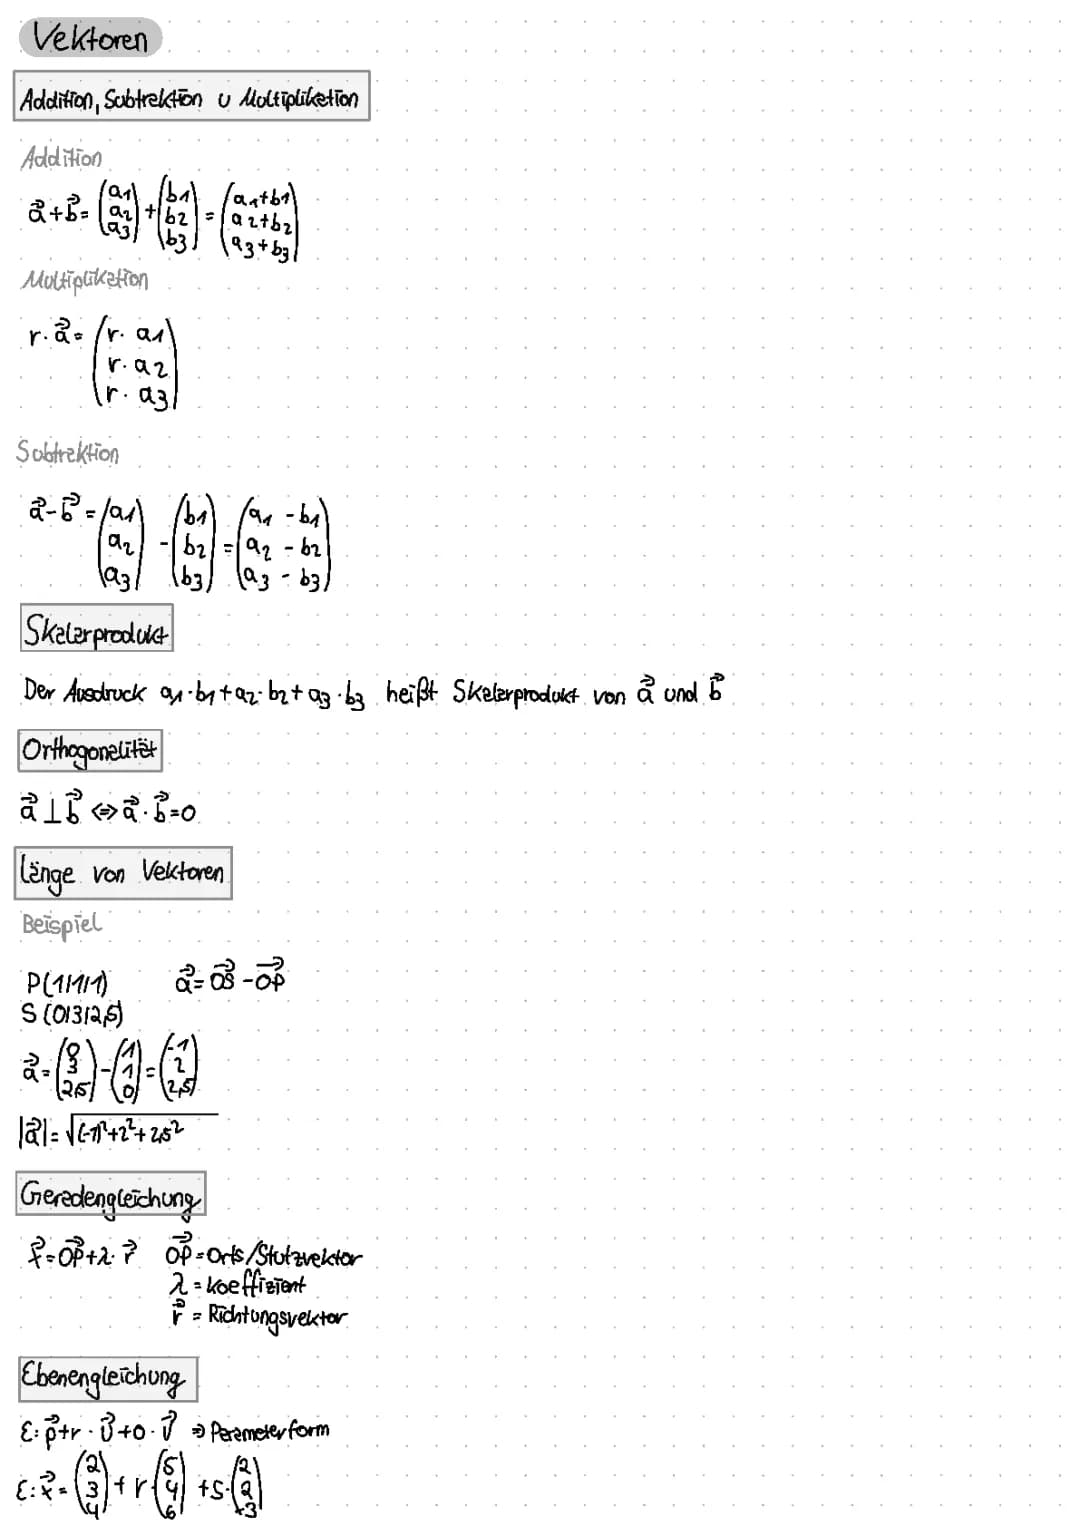 Vektoren
Addition, Subtraktion u Multiplikation
Addition
a⃗+b⃗= (a1 a2 a3) + (b1 b2 b3) = (a1+b1 a2+b2 a3+b3)
Multiplikation
r·a⃗= (r·a1 r·a2 r·a3)
Subtraktion
a⃗-b⃗ = (a1 a2 a3) - (b1 b2 b3) = (a1-b1 a2-b2 a3-b3)
Skalarprodukt
Der Ausdruck a1·b1+a2·b2+a3·b3 heißt Skalarprodukt von a⃗ und b⃗
Orthogonalität
a⃗ ⊥ b⃗ <=> a⃗·b⃗=0
Länge von Vektoren
Beispiel
P(1|1|1) a⃗= OS⃗ - OP⃗
S(0|3|2,5)
a⃗= (0 3 2,5) - (1 1 0) = (-1 2 2,5)
|a⃗|= √((-1)²+2²+2,5²)
Geradengleichung
x⃗=OP⃗+λ·r⃗ OP⃗=Orts/Stutzvektor
λ = Koeffizient
r⃗ = Richtungsvektor
Ebenengleichung
E: p⃗+r·U⃗+o·V⃗ => Parameterform
E: x⃗= (2 3 4) + r·(5 4 6) +s·(2 2 -3)